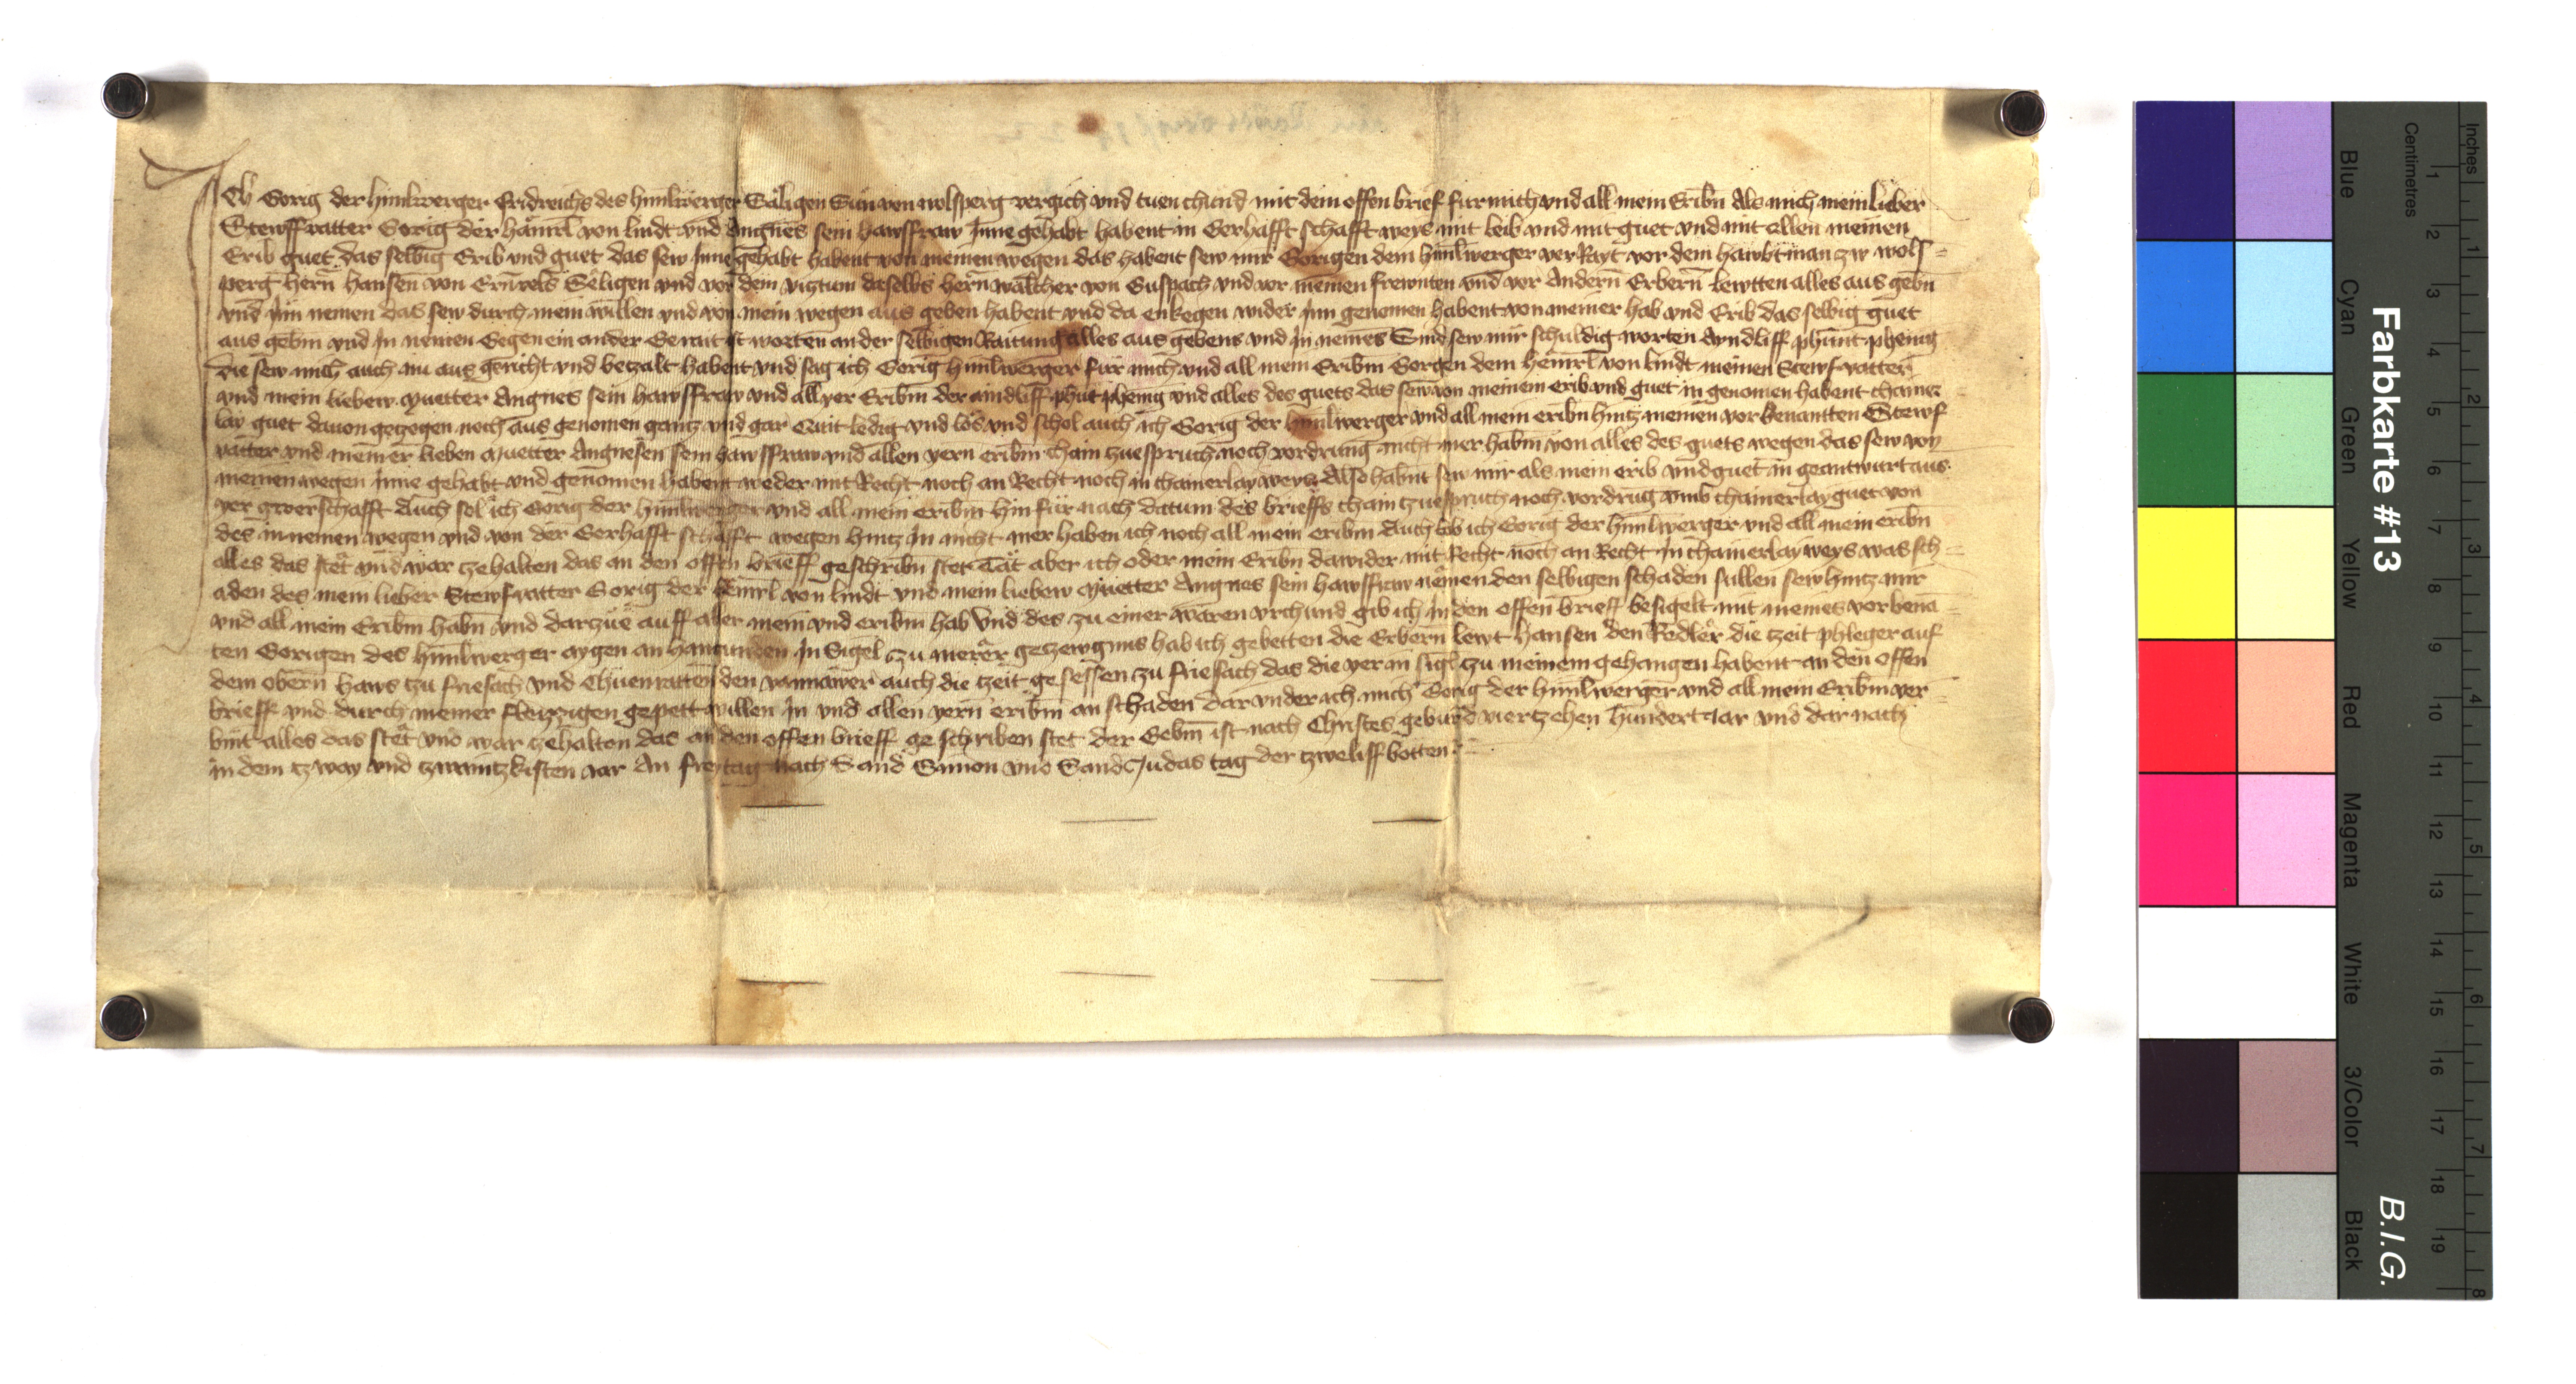 Ich Gorig der himlwerger fridreichs des himlwerger Säligen Sun von wolfsperg vergich vnd tuen chund mit dem offen brief fur mich vnd all mein Eribn Als mich mein lieber
Stewffvatter Gorig der hämrl von lindt vnd Angnes sein hawsffraw Inne gehabt habent in Gerhafft schafft weys mit leib vnd mit guet vnd mit allen meinen
Erib guet das selbig Erib vnd guet das sew Inne gehabt habent von meinen wegen das habent sew mir Gorigen dem himlwerger verRayt vor dem hawbtman zw wolf=
perg hern hansen von Seligen vnd vor dem viztum daselbs hern walcher von Guspach vnd vor meinen frewnten vnd vor Andern Erbern lewtten alles aus gebn
vnd Inn nemen das sew durch mein willen vnd von mein wegen aus geben habent vnd da enkegen wider Inn genomen habent von meiner hab vnd Erib das selbig guet
aus gebm vnd In nemen Gegen ein ander Gerait ist worten an der selbigen Raitung alles aus gebens vnd In nemes Sind sew mir schuldig worten Ayndliff phunt phenig
die sew mich auch nu aus gericht vnd betzalt habent vnd sag ich Gorig himlwerger für mich vnd all mein Eribm Gorgen dem hemrl von lindt meinen Stewfvatter
vnd mein liebew Muetter Angnes sein hawsffraw vnd all yer Eribm der aindliff phut phenig vnd alles des guets das sew von meinem erib vnd guet in genomen habent chainer
lay guet dauon getzogen noch aus genomen gantz vnd gar Quit ledig vnd los vnd schol auch ich Gorig der himlwerger vnd all mein eribn hintz meinen vorbenantten Stewf
vatter vnd meiner lieben Muetter Angnesen sein hawsffraw vnd allen yern eribm chain zuespruch noch vordrung nicht mer habm von alles des guets wegen das sew von
meinen wegen Inne gehabt vnd genomen habent weder mit Recht noch an Recht noch in chainerlay weys Also habnt sew mir als mein erib vnd guet in geantwurt aus
yer gwerschafft Auch sol ich Gorig der himlwerger vnd all mein eribm hinfür nach datum des brieffs chain tzuespruch noch vordrug vmb chainerlay guet von
des in nemen wegen vnd von der Gerhafft schafft wegen hintz In nicht mer haben ich noch all mein eribm Auch lob ich Gorig der himlwerger vnd all mein eribn
alles das stet vnd war zehalten das an den offen brieff geschribn stet Tät aber ich oder mein Eribn dawider mit Recht noch an Recht In chainerlay weys was sch=
aden des mein lieber Stewfvatter Gorig der hemrl von lindt vnd mein liebew Muetter Angnes sein hawsffraw nemen den selbigen schaden sullen sew hintz mir
vnd all mein Eribm habn vnd dartzue auff aller mein vnd eribm hab Vnd des zu einer waren vrchund gib ich In den offen brieff besigelt mit meines vorbena=
ten Gorigen des himlwerger aygen an hangunden In Sigel Zu merer getzewgnus hab ich gebetten die Erbern lewt hansen den Redler die tzeit phleger auf
dem obern haws tzu friesach vnd Chuenratten den auch die tzeit gesessen tzu friesach das die yer in sigl tzu meinem gehangen habent an den offen
brieff vnd durch meiner fleyzzigen gepett willen In vnd allen yern eribm an schaden Dar vnder ich mich Gorig der himlwerger vnd all mein Eribm ver=
bint alles das stet vnd war tzehalten das an den offen brieff geschriben stet Der Gebm ist nach Christes geburd viertzehen hundert Jar vnd dar nach
in dem tzway vnd tzwaintzkisten Jar An freytag nach Sand Simon vnd Sand Judas tag der tzweliff botten
Farbkarte #13
B.I.G.
Inches
Centimetres
1 2 3 4 5 6 7 8
1 2 3 4 5 6 7 8 9 10 11 12 13 14 15 16 17 18 19
Blue
Cyan
Green
Yellow
Red
Magenta
White
3/Color
Black